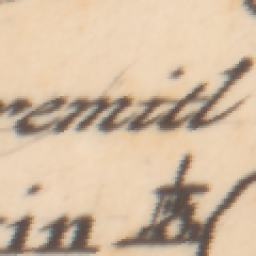 remitl
in